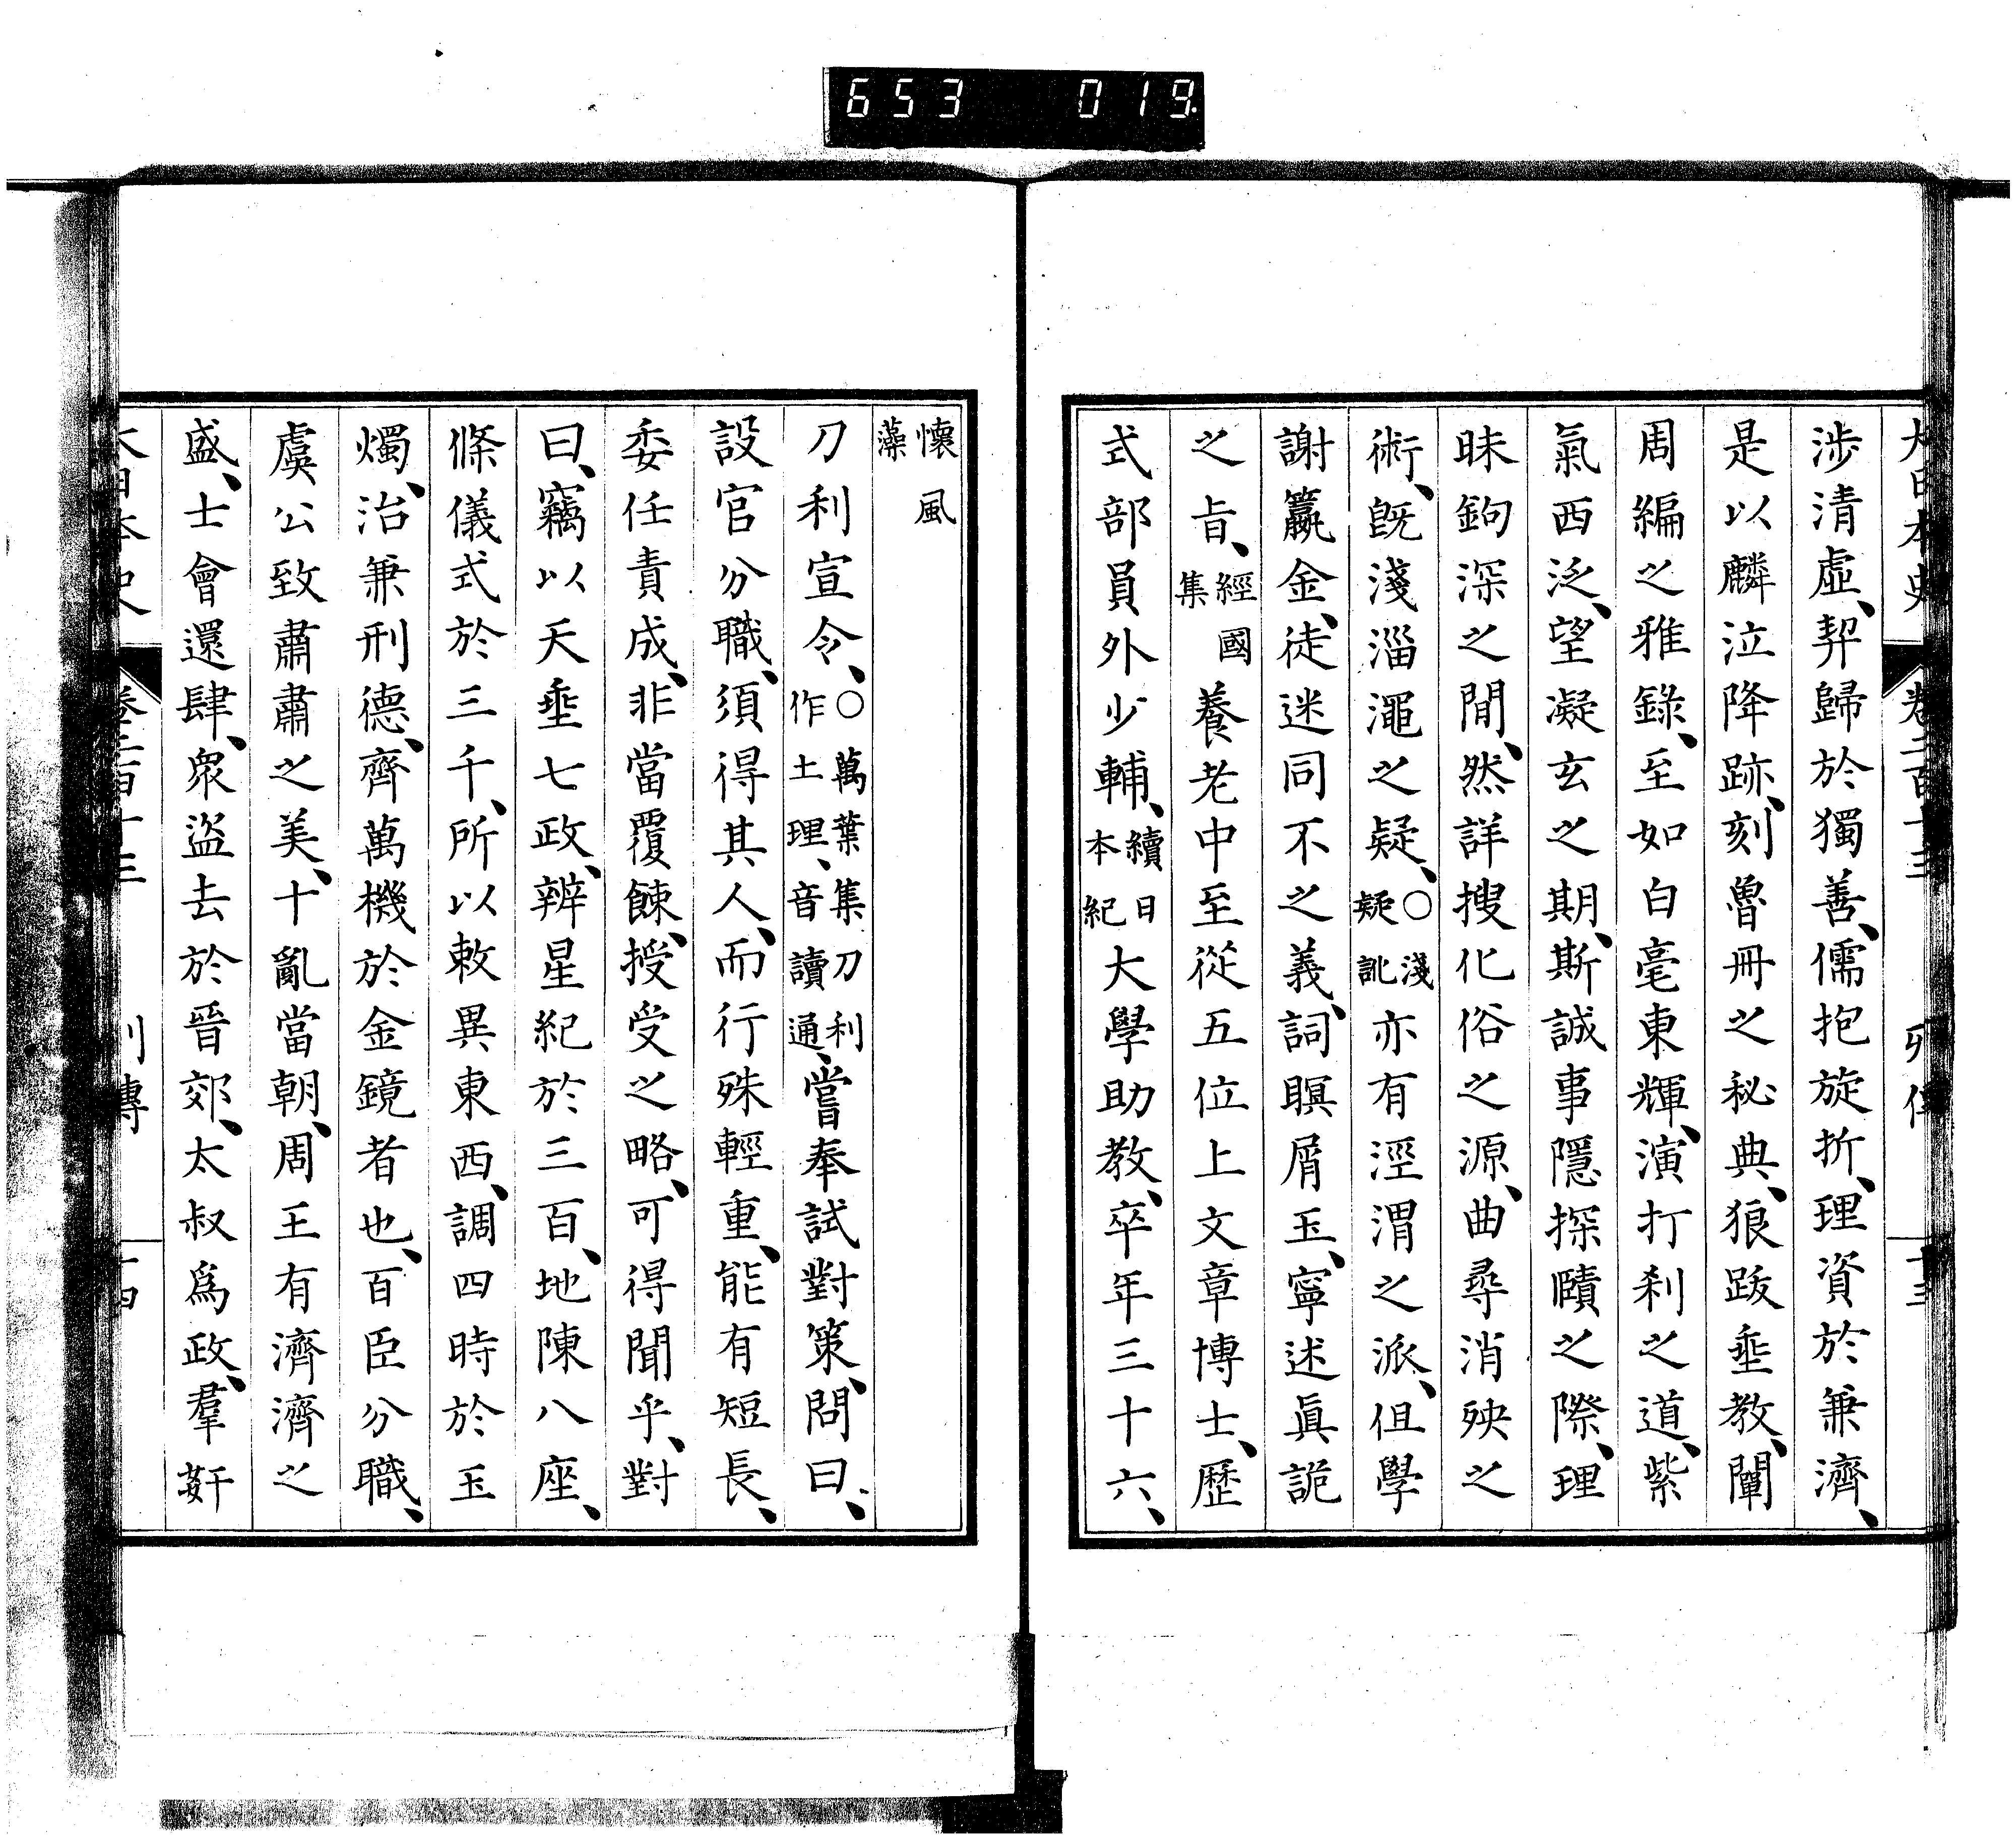 653 019
大日本史 卷二百十三 列傳 十三
涉清虛、契歸於獨善、儒抱旋折、理資於兼濟、
是以麟泣降跡、刻魯冊之秘典、狼跋垂教、闡
周編之雅錄、至如白毫東輝、演打刹之道、紫
氣西泛、望凝玄之期、斯誠事隱探賾之際、理
昧鉤深之閒、然詳搜化俗之源、曲尋消殃之
術、旣淺淄澠之疑、○淺疑訛亦有涇渭之派、但學
謝籯金、徒迷同不之義、詞瞑屑玉、寧述眞詭
之旨、經國集養老中至從五位上文章博士、歷
式部員外少輔、續日本紀大學助教、卒年三十六、
懷風藻
刀利宣令、○萬葉集刀利作土理、音讀通、嘗奉試對策、問曰、
設官分職、須得其人、而行殊輕重、能有短長、
委任責成、非當覆餗、授受之略、可得聞乎、對
曰、竊以天垂七政、辨星紀於三百、地陳八座、
條儀式於三千、所以敕異東西、調四時於玉
燭、治兼刑德、齊萬機於金鏡者也、百臣分職、
虞公致肅肅之美、十亂當朝、周王有濟濟之
盛、士會還肆、衆盜去於晉郊、太叔爲政、羣姧
大日本史 卷二百十三 列傳 十四